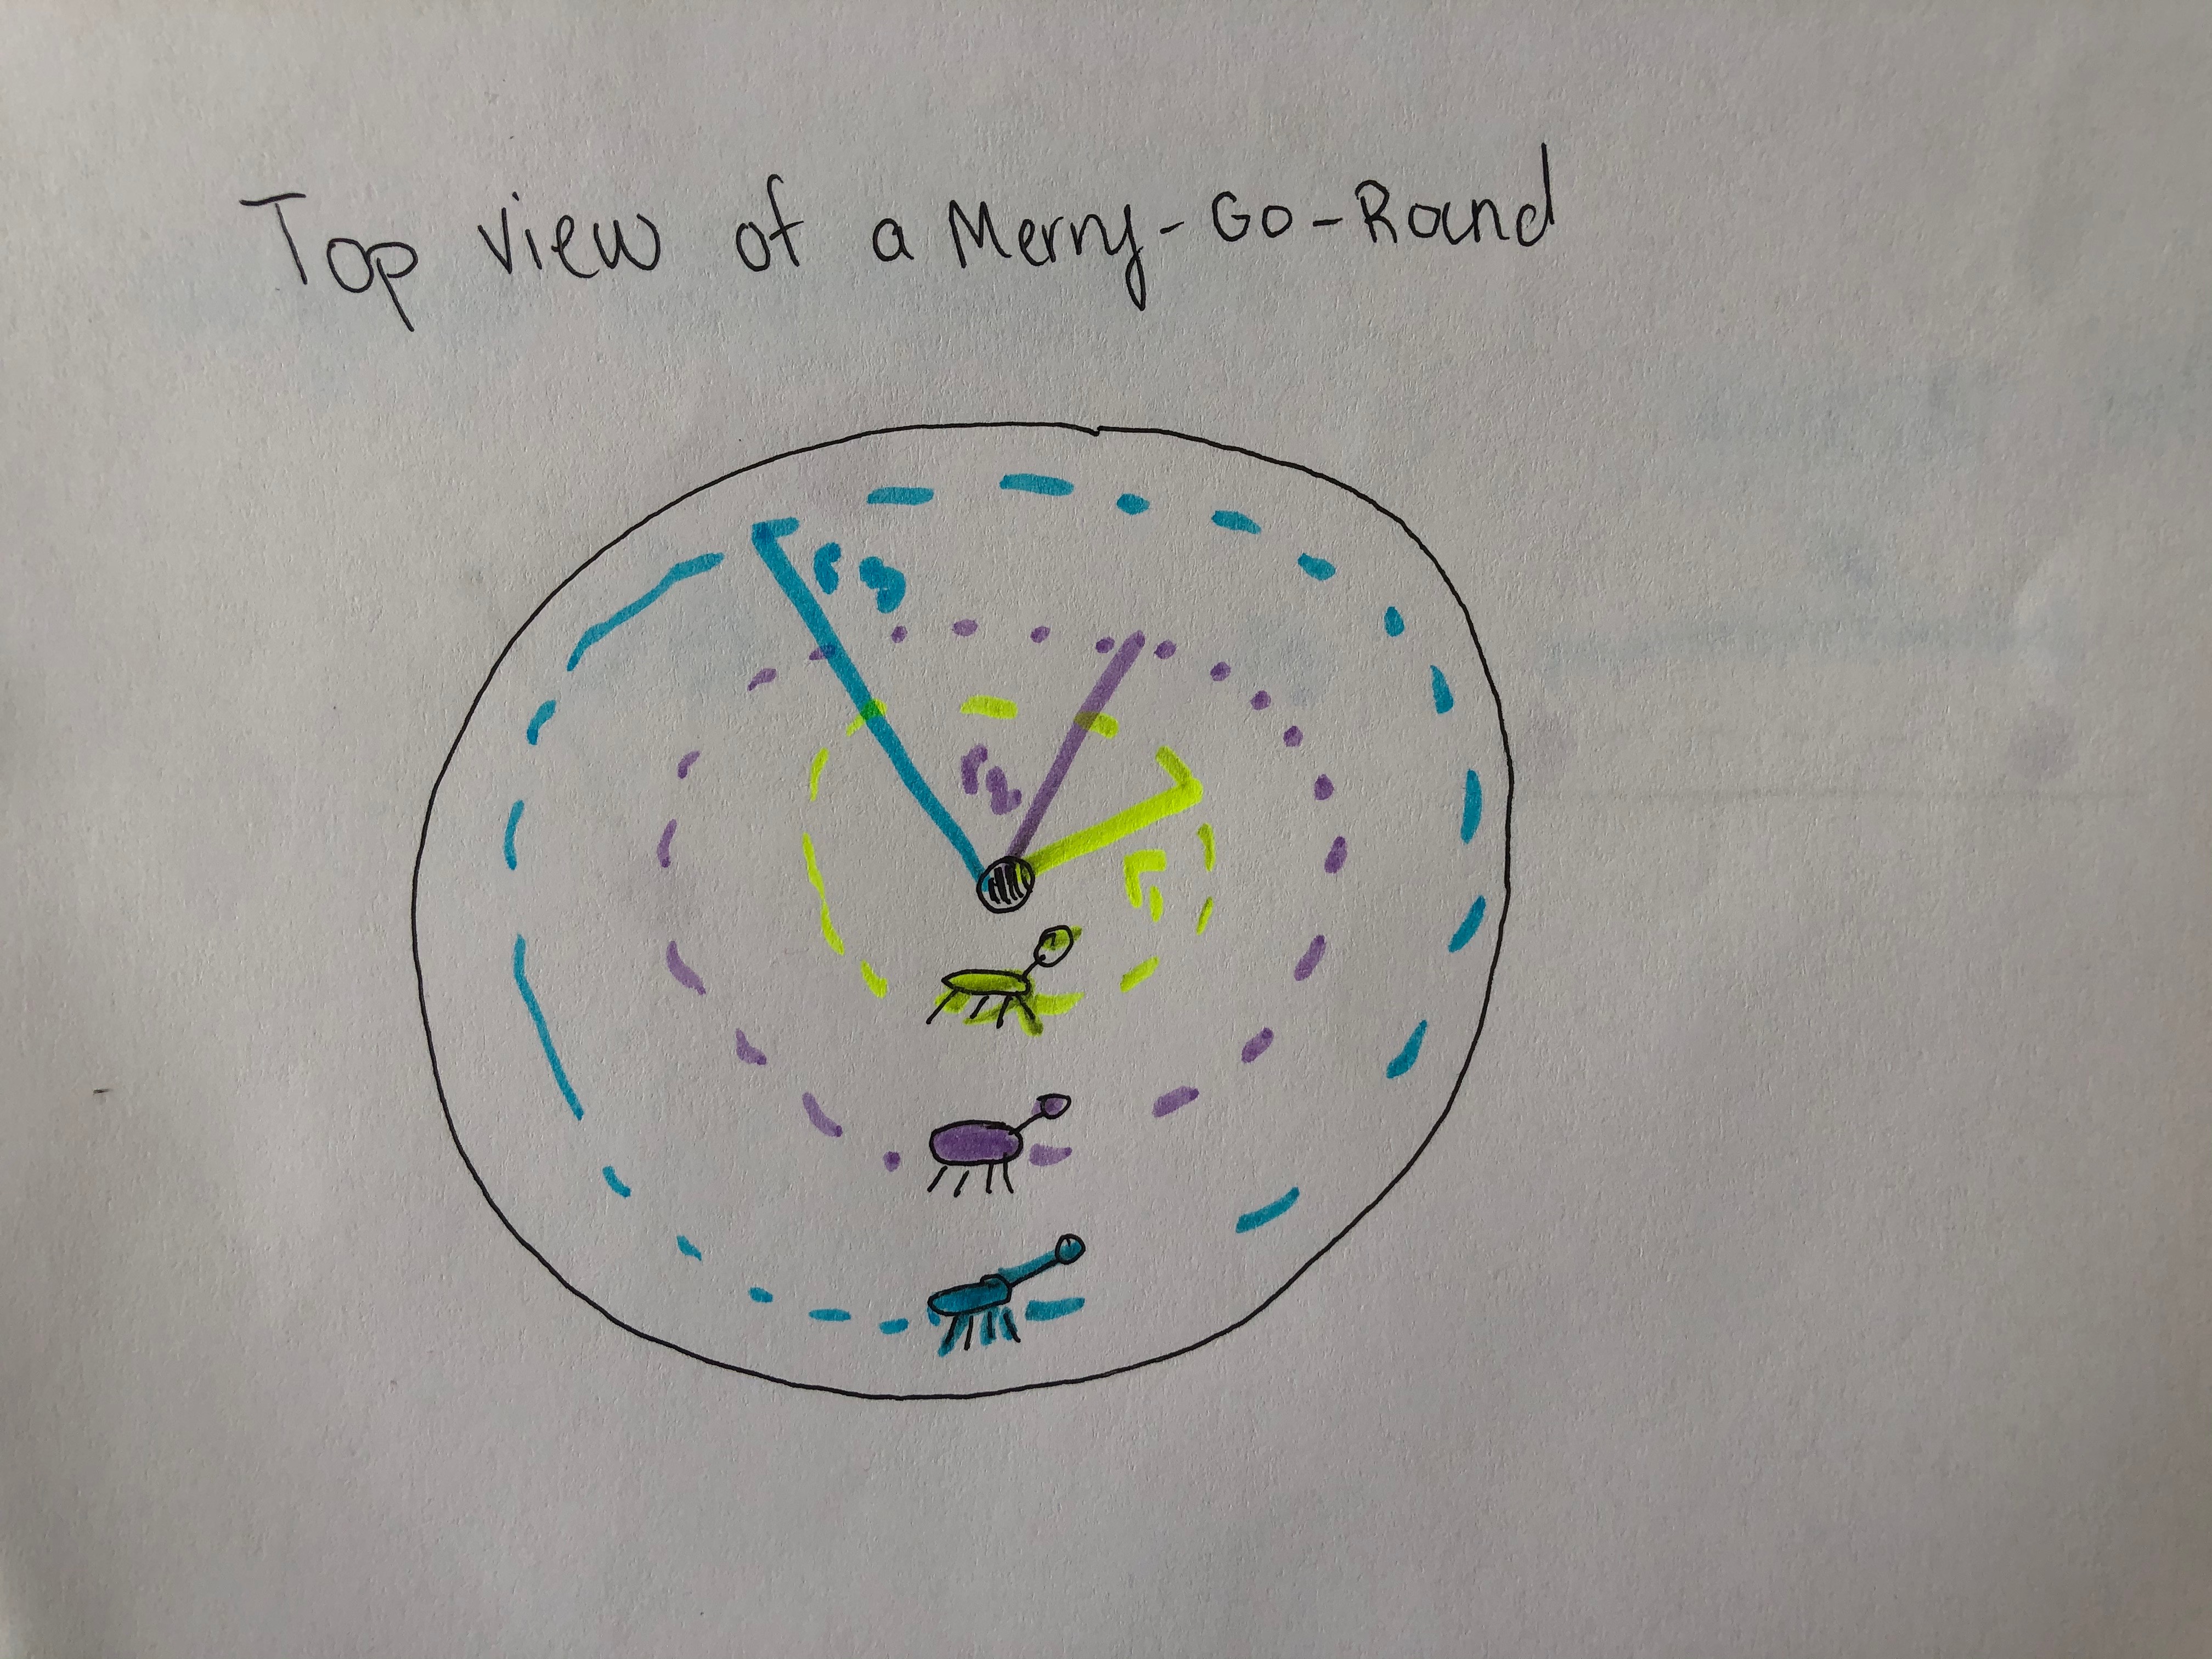 Top view of a Merry-Go-Round
r3
r2
r1